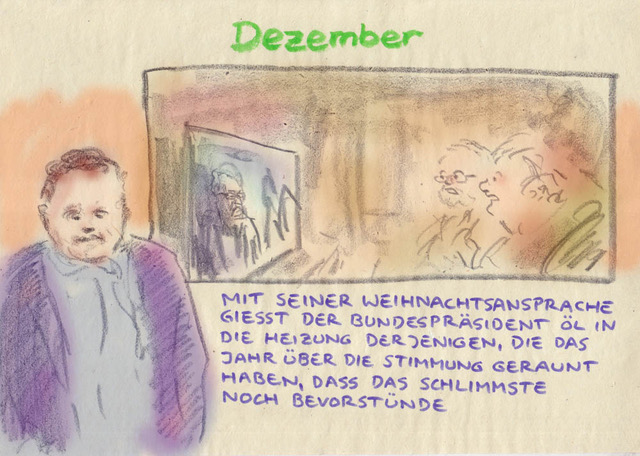 Dezember
MIT SEINER WEIHNACHTSANSPRACHE
GIESST DER BUNDESPRÄSIDENT ÖL IN
DIE HEIZUNG DERJENIGEN, DIE DAS
JAHR ÜBER DIE STIMMUNG GERAUNT
HABEN, DASS DAS SCHLIMMSTE
NOCH BEVORSTÜNDE